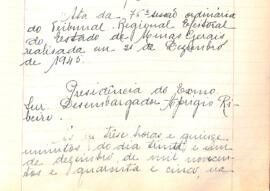 Ata da 75ª sessão ordinária
do Tribunal Regional Eleitoral
do Estado de Minas Gerais
realizada em 31 de Dezembro
de 1945.
Presidência do Exmo
Snr. Desembargador Aprigio Ri-
beiro.
Ás treze horas e quinze
minutos do dia trinta e um
de dezembro de mil novecen-
tos e quarenta e cinco, na